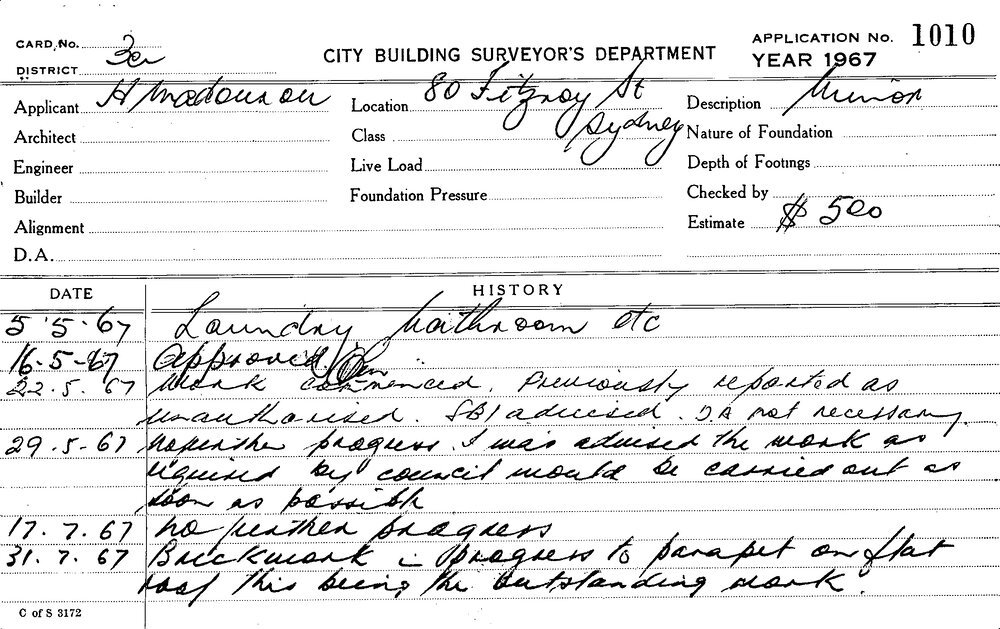 CARD No. 3a
DISTRICT
CITY BUILDING SURVEYOR'S DEPARTMENT
APPLICATION No. 1010
YEAR 1967
Applicant H
Location 80 Fitzroy St
Sydney
Description Minor
Architect
Class
Nature of Foundation
Engineer
Live Load
Depth of Footings
Builder
Foundation Pressure
Checked by
Alignment
Estimate $ 500
D.A.
DATE
HISTORY
5.5.67 Laundry bathroom etc
16-5-67 Approved
22.5.67 Work commenced. Previously reported as
unauthorised. SBI advised. DA not necessary.
29.5-67 No further progress. I was advised the work as
required by council would be carried out as
soon as possible
17.7.67 No further progress
31.7.67 Brickwork in progress to parapet on flat
roof this being the outstanding work.
C of S 3172